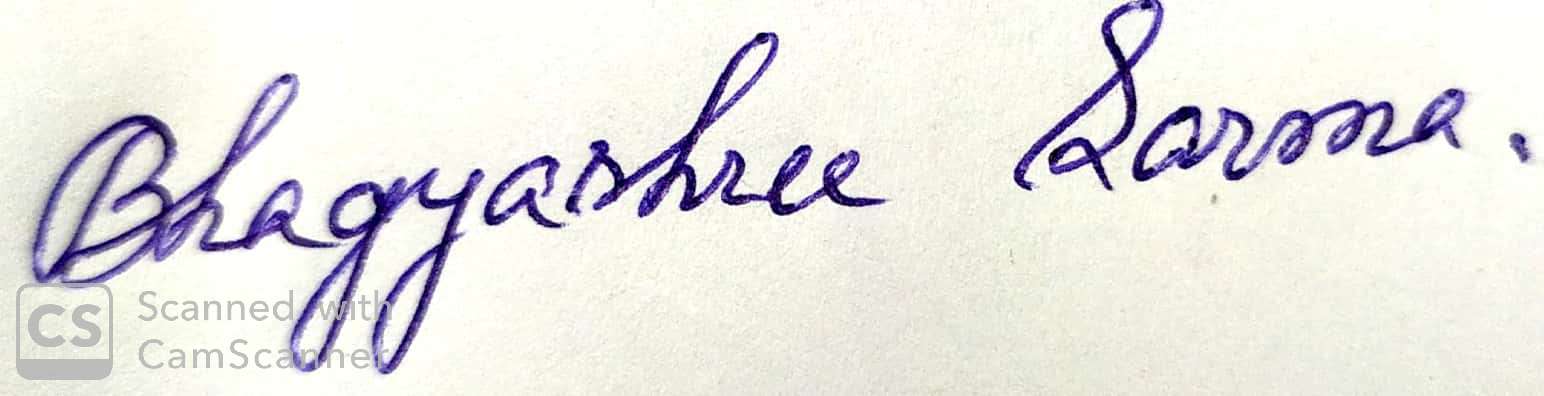 Bhagyashree Sarma.
CS Scanned with
CamScanner